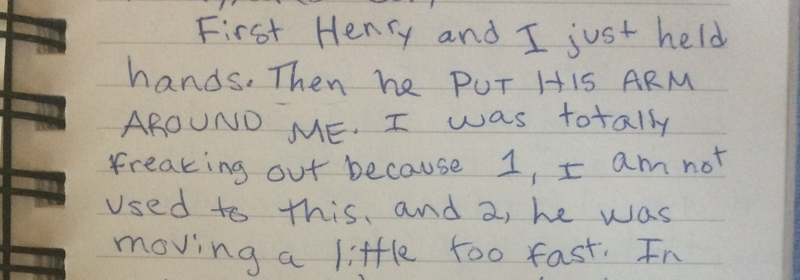 First Henry and I just held
hands. Then he PUT HIS ARM
AROUND ME. I was totally
freaking out because 1, I am not
used to this, and 2, he was
moving a little too fast. In